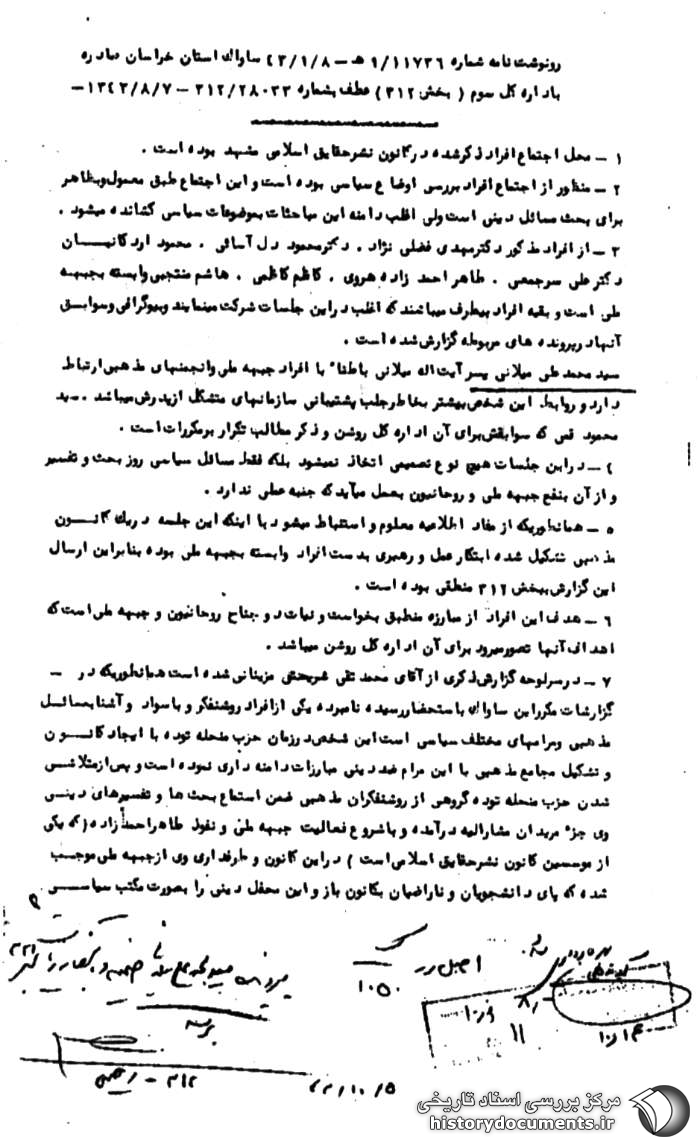 رونوشت نامه شماره ۹/۱۱۷۳۶ هـ – ۴۳/۹/۸ ساواك استان خراسان صادره
باداره کل سوم ( بخش ۳۱۲ ) عطف بشماره ۳۱۲/۲۸۰۳۳ – ۱۳۴۳/۸/۷ –
۱ – محل اجتماع افراد ذکرشده درکانون نشرحقایق اسلامی مشهد بوده است .
۲ – منظور از اجتماع افراد بررسی اوضاع سیاسی بوده است و این اجتماع طبق معمول و بظاهر
برای بحث مسائل دینی است ولی اغلب دامنه این مباحثات بموضوعات سیاسی کشانده میشود .
۳ – از افراد مذکور دکترمهدی فضلی نژاد . دکترمحمود دل آسائی . محمود اردکانیان
دکتر علی سرجمعی . طاهر احمد زاده هروی . کاظم کاظمی . هاشم منتجبی وابسته بجبهه
ملی است و بقیه افراد بیطرف میباشند که اغلب دراین جلسات شرکت مینمایند وبیوگرافی وسوابق
آنها درپرونده های مربوطه گزارش شده است .
سید محمد علی میلانی پسر آیت اله میلانی باطناً با افراد جبهه ملی وانجمنهای مذهبی ارتباط
دارد و روابط این شخص بیشتر بخاطر جلب پشتیبانی سازمانهای متشکل ازپدرش میباشد . سید
محمود قمی که سوابقش برای آن اداره کل روشن و ذکر مطالب تکرار برمکررات است .
۴ – دراین جلسات هیچ نوع تصمیمی اتخاذ نمیشود بلکه فقط مسائل سیاسی روز بحث و تفسیر
و از آن بنفع جبهه ملی و روحانیون بعمل میآید که جنبه عملی ندارد .
۵ – همانطوریکه از مفاد اطلاعیه معلوم و استنباط میشود با اینکه این جلسه دریك کانون
مذهبی تشکیل شده ابتکار عمل و رهبری بدست افراد وابسته بجبهه ملی بوده بنابراین ارسال
این گزارش ببخش ۳۱۲ منطقی بوده است .
۶ – هدف این افراد از مبارزه منطبق بخواست و نیات دو جناح روحانیون و جبهه ملی است که
اهداف آنها تصورمیرود برای آن اداره کل روشن میباشد .
۷ – درسرلوحه گزارش ذکری از آقای محمد تقی شریعتی مزینانی شده است همانطوریکه در –
گزارشات مکرراین ساواك باستحضار رسیده نامبرده یکی ازافراد روشنفکر و باسواد و آشنا بمسائل
مذهبی ومرامهای مختلف سیاسی است این شخص درزمان حزب منحله توده با ایجاد کانون
و تشکیل مجامع مذهبی با این مرام ضد دینی مبارزات دامنه داری نموده است و پس ازمتلاشی
شدن حزب منحله توده گروهی از روشنفکران مذهبی ضمن استماع بحث ها و تفسیرهای دینی
وی جزء مریدان مشارالیه درآمده و باشروع فعالیت جبهه ملی و نفوذ طاهراحمد زاده ( که یکی
از موسسین کانون نشرحقایق اسلامی است ) دراین کانون و طرفداری وی ازجبهه ملی موجب
شده که پای دانشجویان و ناراضیان بکانون باز و این محفل دینی را بصورت مکتب سیاسی
اصل در
۱۰۵۰
۳۱۲
مرکز بررسی اسناد تاریخی
historydocuments.ir